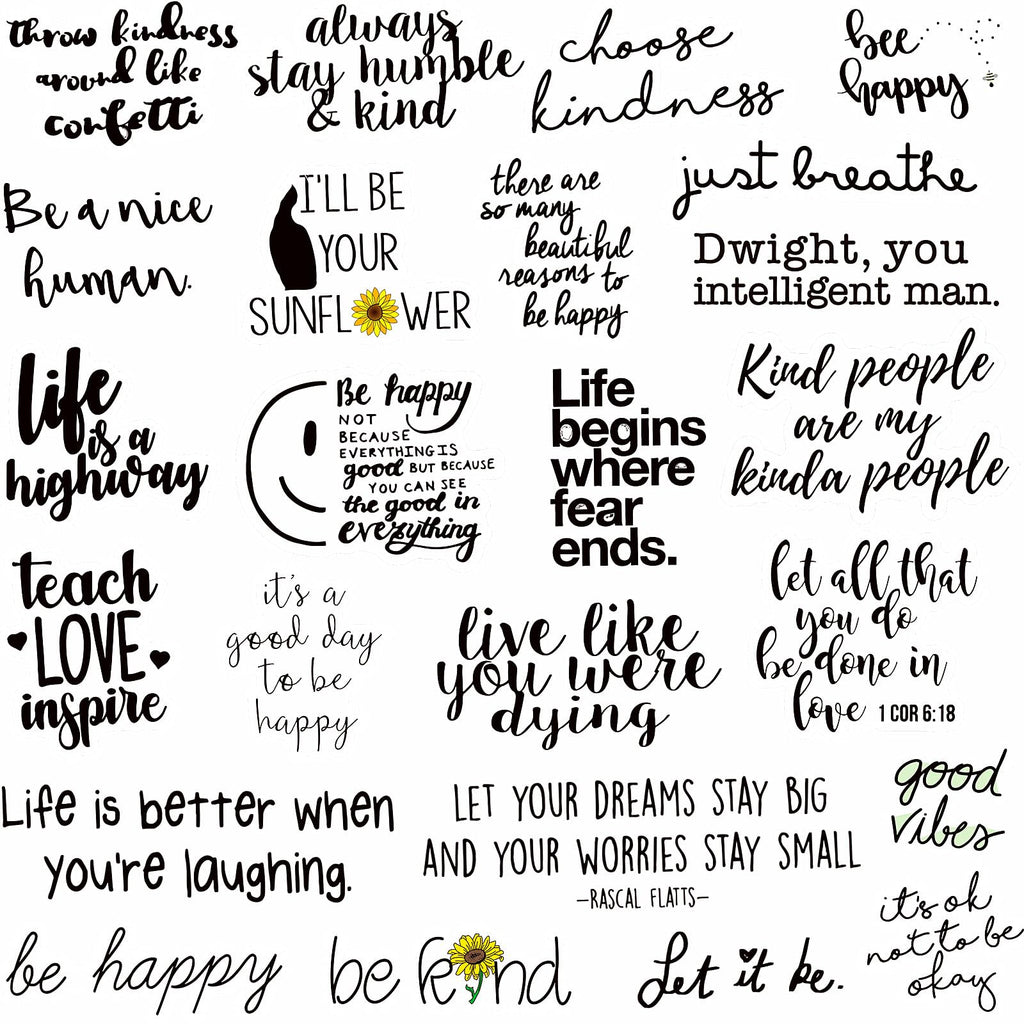 throw kindness
around like
confetti
always
stay humble
& kind
choose
kindness
bee
happy
Be a nice
human.
I'LL BE
YOUR
SUNFLOWER
there are
so many
beautiful
reasons to
be happy
just breathe
Dwight, you
intelligent man.
life
is a
highway
Be happy
NOT
BECAUSE
EVERYTHING IS
good BUT BECAUSE
YOU CAN SEE
the good in
everything
Life
begins
where
fear
ends.
Kind people
are my
kinda people
teach
LOVE
inspire
it's a
good day
to be
happy
live like
you were
dying
let all that
you do
be done in
love 1 COR 6:18
Life is better when
you're laughing.
LET YOUR DREAMS STAY BIG
AND YOUR WORRIES STAY SMALL
–RASCAL FLATTS–
good
vibes
be happy
be kind
Let it be.
it's ok
not to be
okay